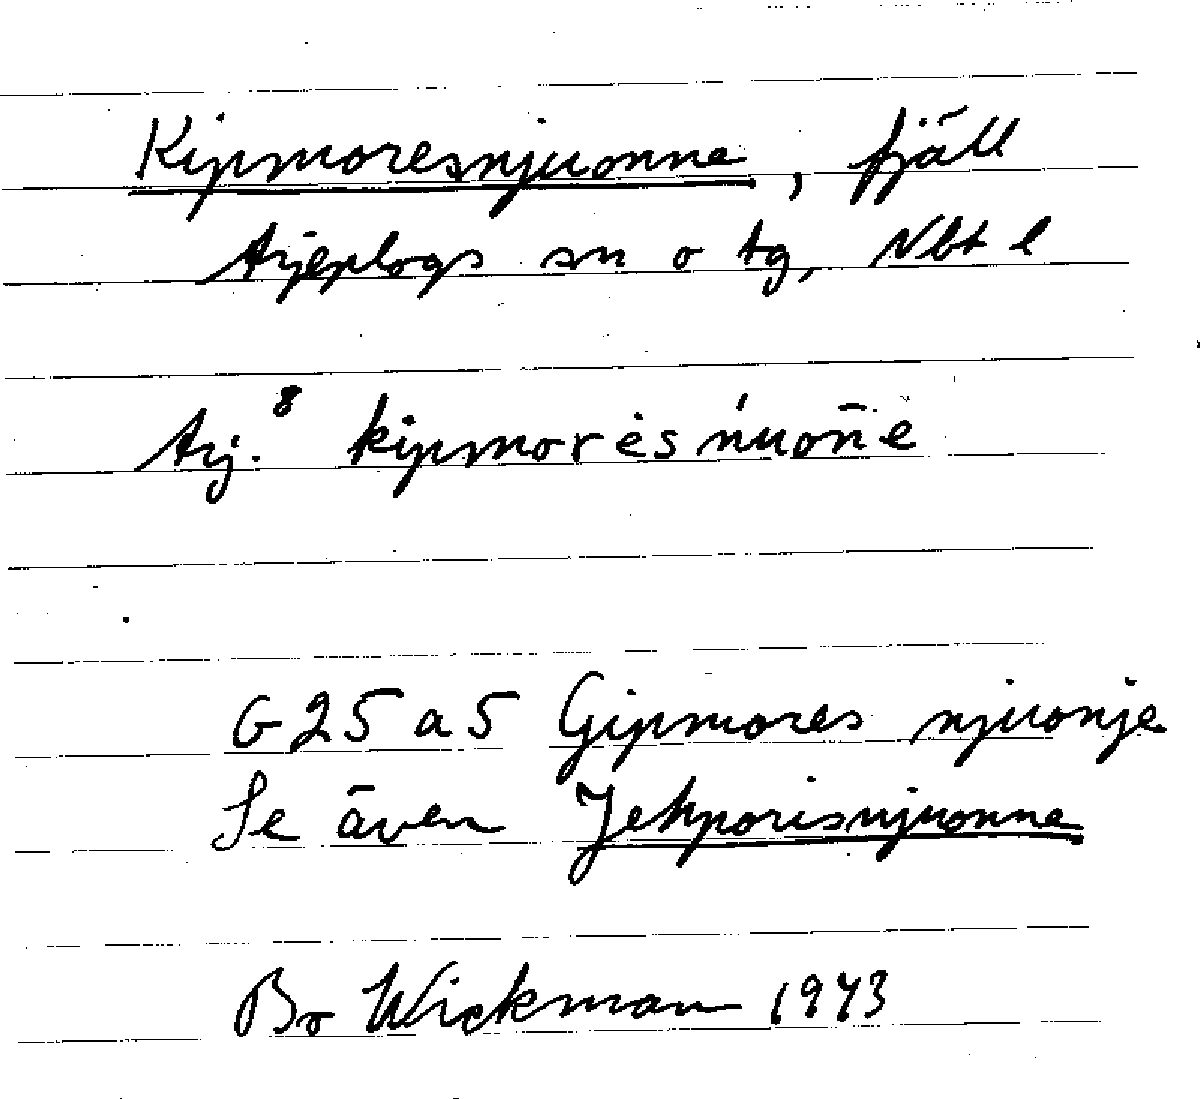 Kipmoresnjuonne, fjäll
Arjeplogs sn o tg, Nbt l
Arj.⁸ kipmorės ńuōn̄e
G25 a5 Gipmores njuonje
Se även Jekporisnjuonne
Bo Wickman 1943